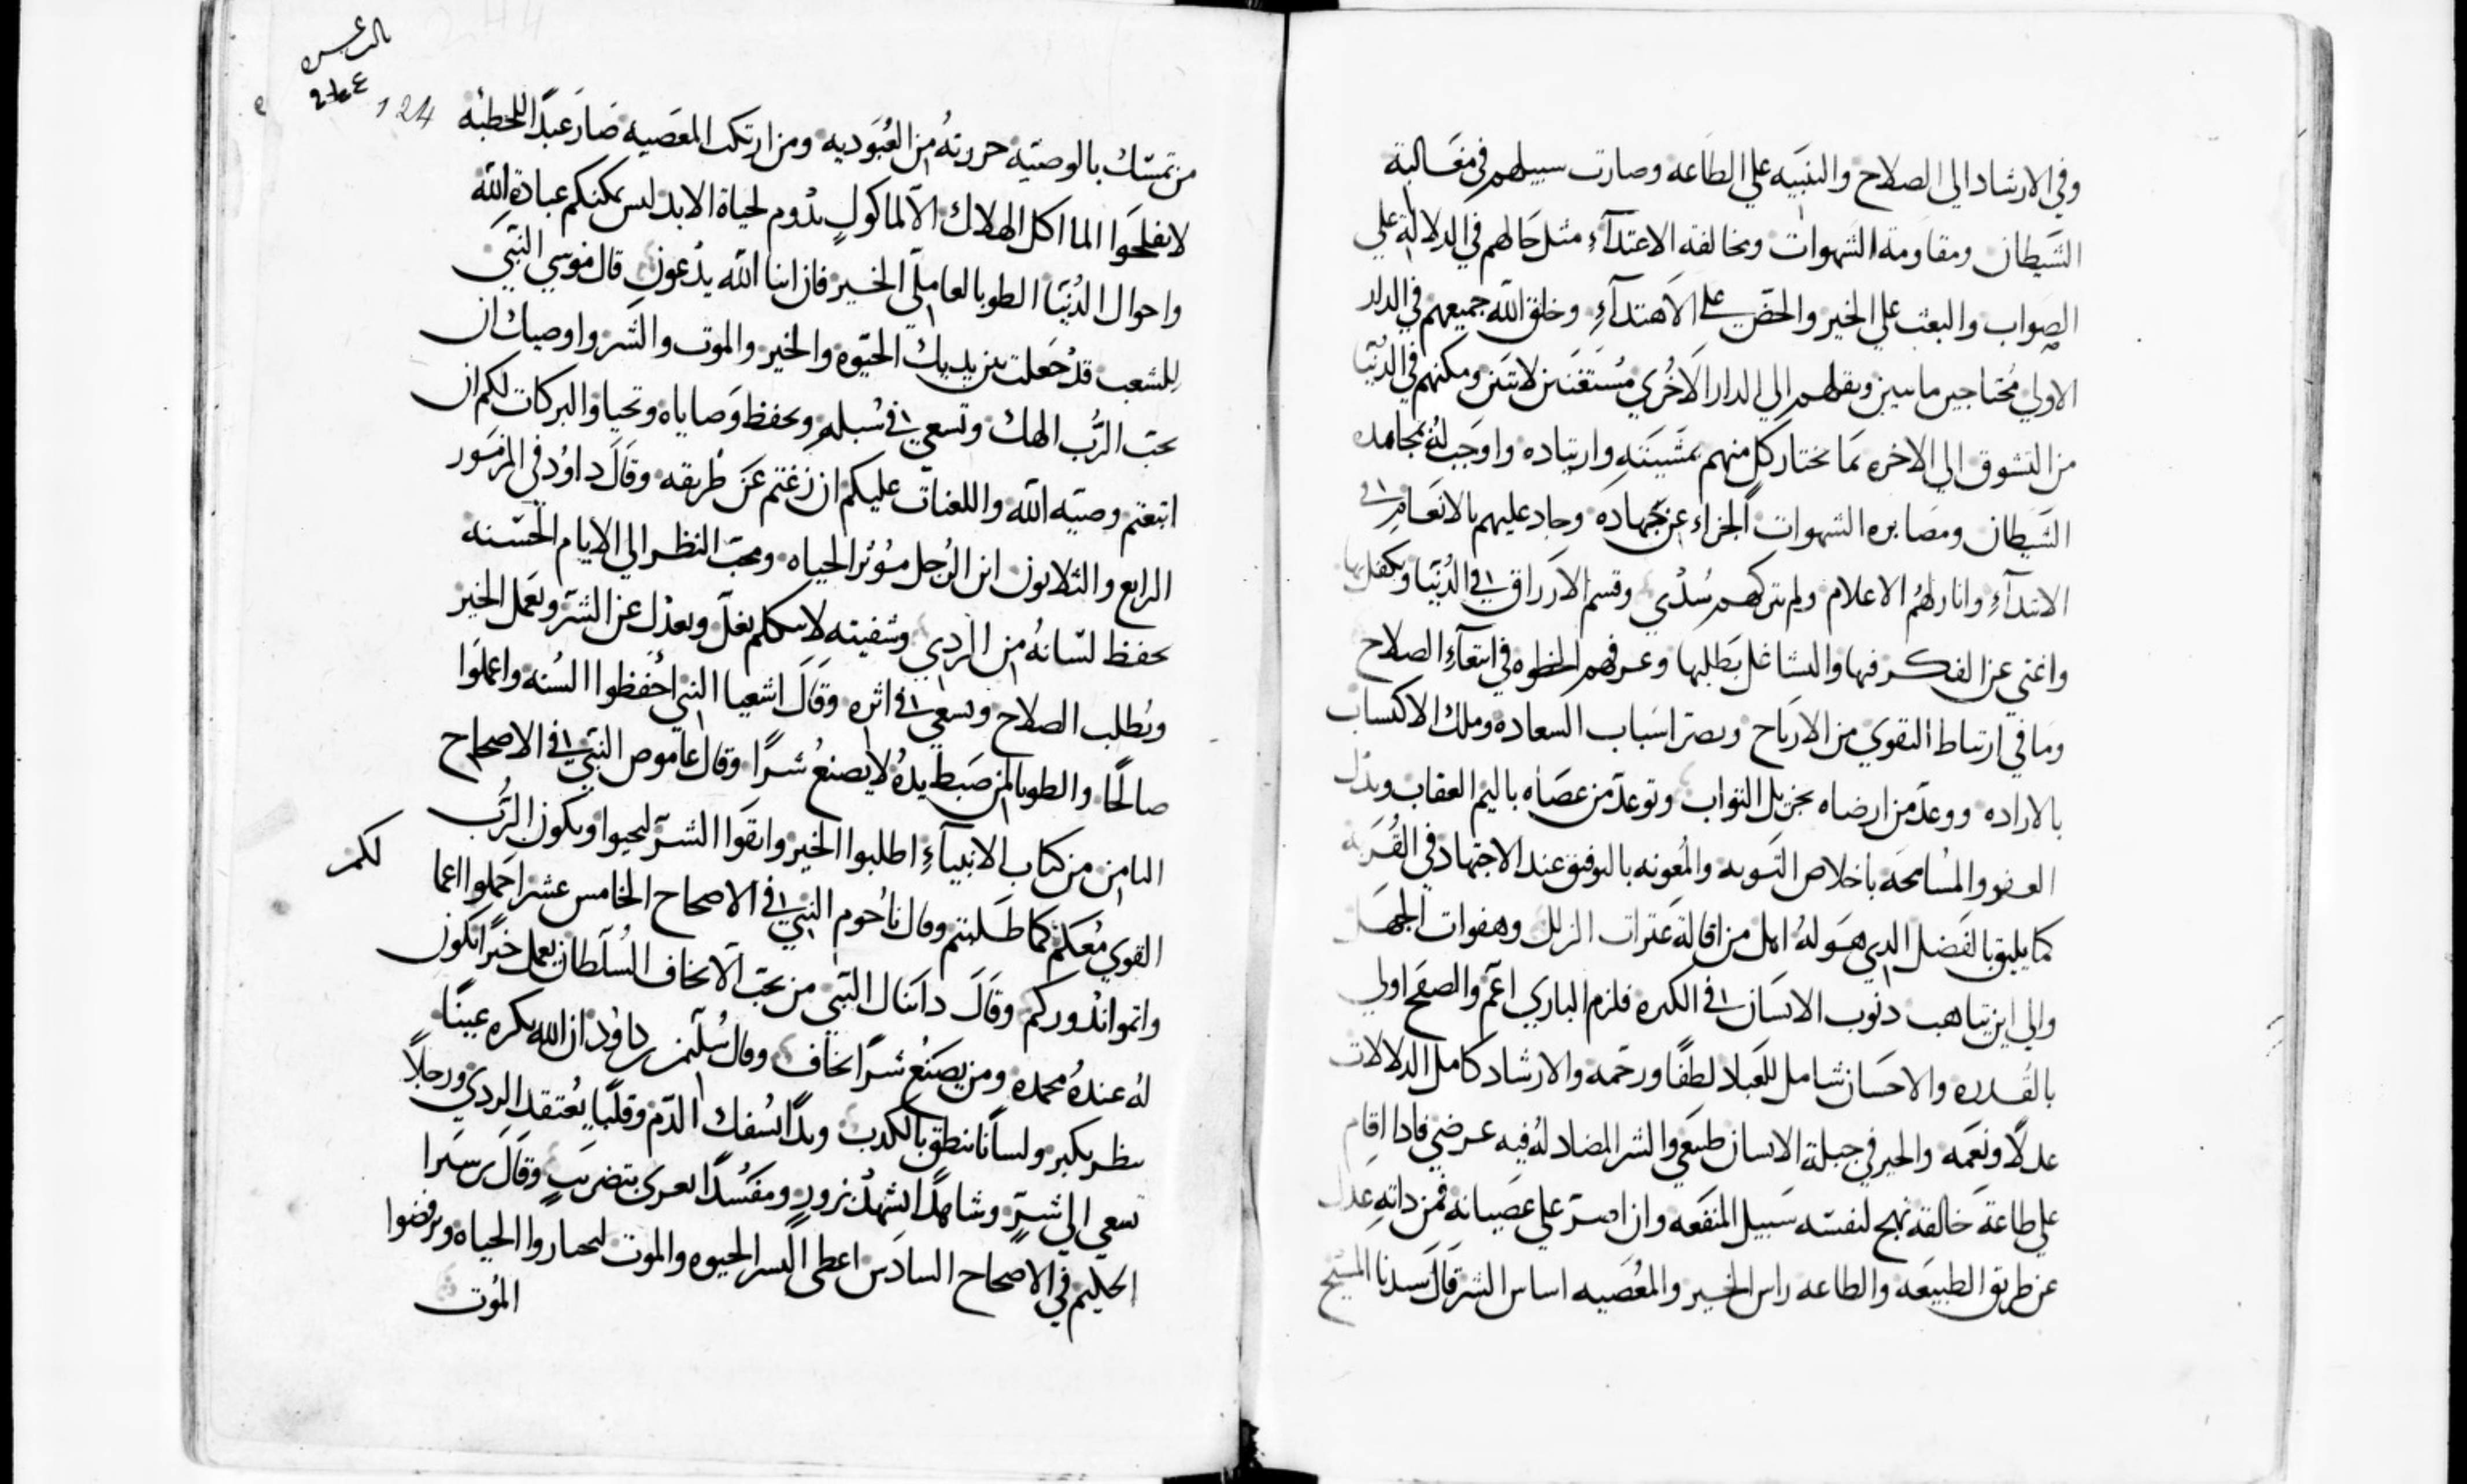 وفي الارشاد الي الصلاح والتنبيه علي الطاعه وصارت سبيلهم في مغالبة
الشيطان ومقاومة الشهوات ومخالفة الاعتداء مثل حالهم في الدلالة علي
الصواب والبعث علي الخير والحض علي الاهتداء وخلق الله جميعهم في الدار
الاولي محتاجين مايتين ونقلهم الي الدار الاخري مستغنين لابثين ومكنهم في الدنيا
من التشوق الي الاخره بما يختار كل منهم بمشيئته وارتياده واوجب له بمجاهده
الشيطان ومصابره الشهوات الجزاء عن جهاده وجاد عليهم بالانعام في
الابتداء وانار لهم الاعلام ولم يتركهم سدي وقسم الارزاق في الدنيا وتكفل بها
واغني عن الفكر فيها والتشاغل بطلبها وعرفهم الحظوه في ابتغاء الصلاح
وما في ارتباط التقوي من الارباح وبصر اسباب السعاده وملك الاكتساب
بالاراده ووعد من ارضاه بجزيل الثواب وتوعد من عصاه باليم العقاب وبذل
العفو والمسامحه باخلاص التوبه والمعونه بالتوفيق عند الاجتهاد في القربه
كما يليق بالفضل الدي هو له اهل من اقالة عثرات الزلل وهفوات الجهل
والي اين تناهت دنوب الانسان في الكثره فلزم الباري اعم والصفح اولي
بالقدره والاحسان شامل للعباد لطفًا ورحمه والارشاد كامل الدلالات
عدلًا ونعمه والخير في جبلة الانسان طبيعي والشر المضاد له فيه عرضي فادا اقام
علي طاعة خالقه نهج لنفسه سبيل المنفعه وان اصر علي عصيانه فمن داته عدل
عن طريق الطبيعه والطاعه راس الخير والمعصيه اساس الشر قال سيدنا المسيح
124
من تمسك بالوصيه حررته من العبوديه ومن ارتكب المعصيه صار عبدًا للخطيه
لا تفلحوا الماكل الهلاك الا لماكول يدوم لحياة الابد ليس يمكنكم عبادة الله
واحوال الدنيا الطوبا لعاملي الخير فان ابنا الله يدعون قال موسي النبي
للشعب قد جعلت بين يديك الحيوه والخير والموت والشر واوصيك ان
تحب الرب الهك وتسعي في سبله وتحفظ وصاياه وتحيا والبركات لكم ان
اتبعتم وصية الله واللعنات عليكم ان زغتم عن طريقه وقال داود في المزمور
الرابع والثلاثون اين الرجل مؤثر الحياه ومحب النظر الي الايام الحسنه
يحفظ لسانه من الردي وشفيته لا تتكلم بغل ويعدل عن الشر ويعمل الخير
ويطلب الصلاح ويسعي في اثره وقال اشعيا النبي احفظوا السنه واعملوا
صالحًا والطوبا لمن ضبط يده لا يصنع شرًا وقال عاموص النبي في الاصحاح
الثامن من كتاب الانبياء اطلبوا الخير واتقوا الشر لتحيوا ويكون الرب
القوي معكم كما طلبتم وقال ناحوم النبي في الاصحاح الخامس عشر احملوا اعيا
لكم
واتموا ندوركم وقال دانيال النبي من يحب الا يخاف السلطان يعمل خيرًا تكون
له عنده محمده ومن يصنع شرًا يخاف وقال سليمن بن داود ان الله يكره عينًا
تنظر بكبر ولسانًا ينطق بالكدب ويدًا تسفك الدم وقلبًا يعتقد الردي ورجلًا
تسعي الي شرٍ وشاهدًا يشهد بزور ومفسدًا بتضريب وقال برسيرا
الحكيم في الاصحاح السادس اعطي البشر الحيوه والموت ليختاروا الحياه ويرفضوا
الموت